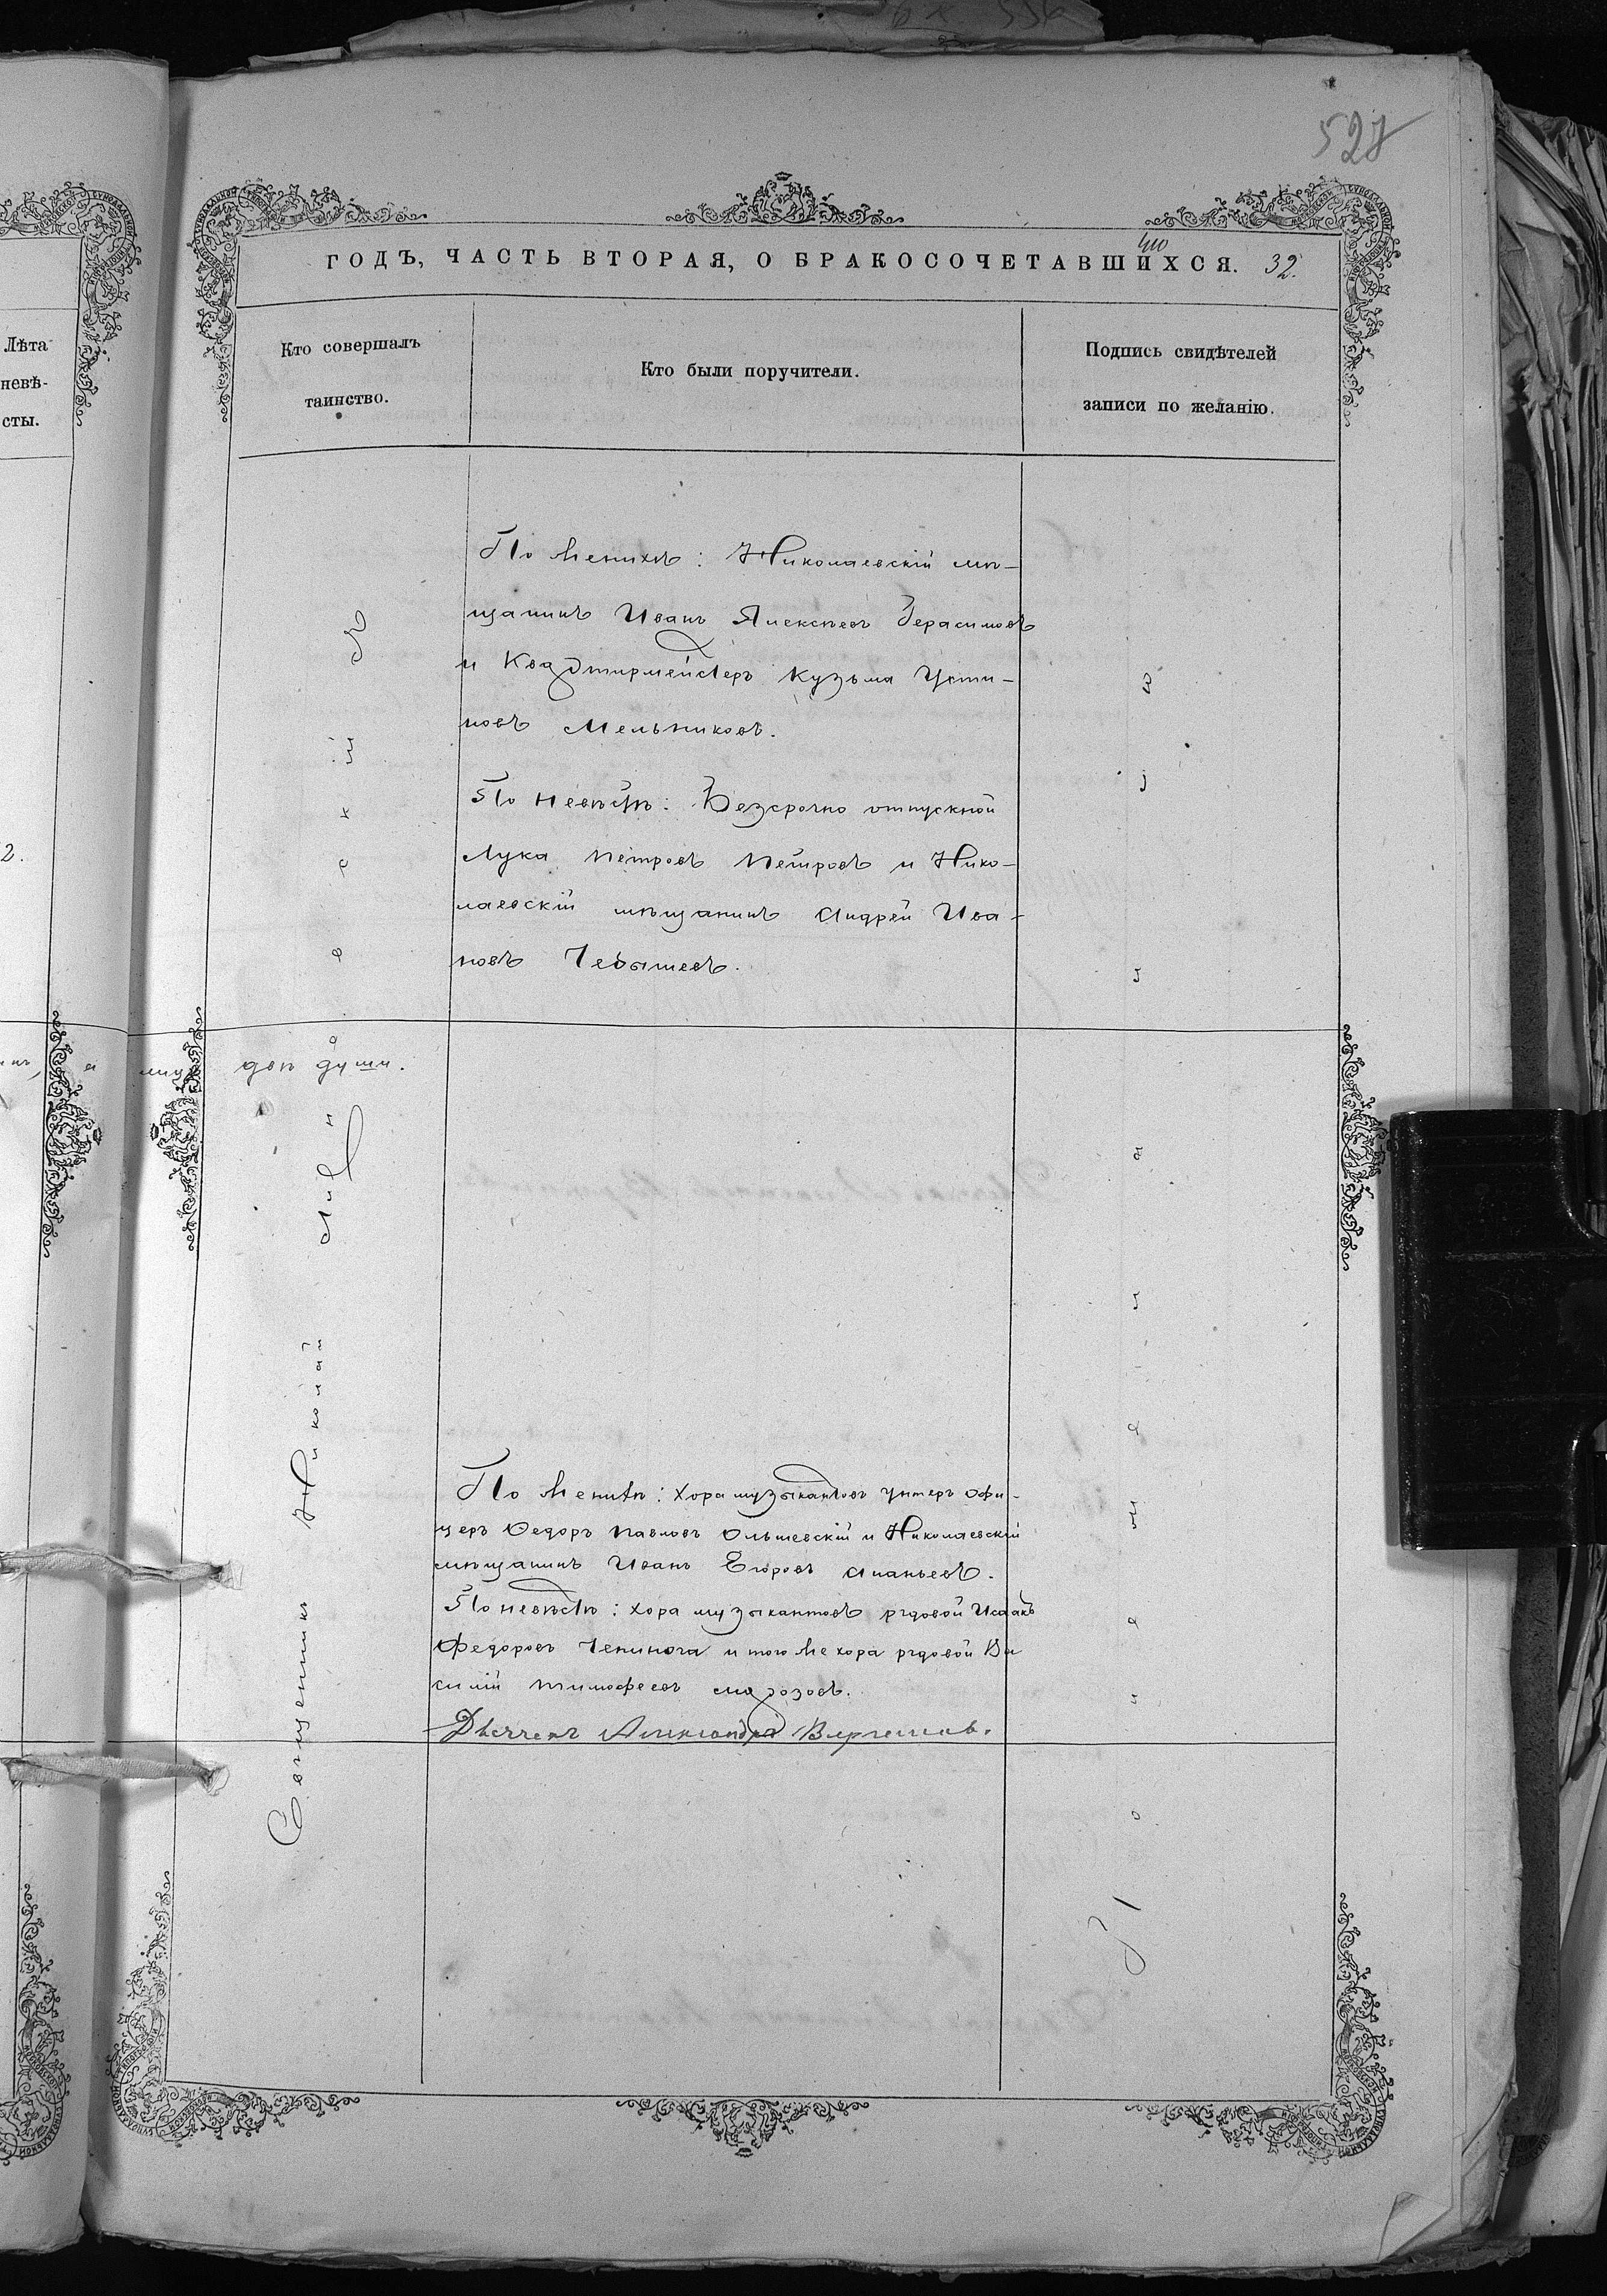 527
ГОДЪ, ЧАСТЬ ВТОРАЯ, О БРАКОСОЧЕТАВШИХСЯ. 32.
Лѣта
невѣ-
сты.
Кто совершалъ
таинство.
Кто были поручители.
Подпись свидѣтелей
записи по желанію.
По женихѣ: Николаевскій мѣ-
щанинъ Иванъ Алексѣевъ Герасимовъ
и Квартирмейстеръ Кузьма Усти-
новъ Мельниковъ.
По невѣстѣ: Безсрочно отпускной
Лука Петровъ Петровъ и Нико-
лаевскій мѣщанинъ Андрей Ива-
новъ Чебышевъ.
2.
душ.
По женихѣ: хора музыкантовъ унтеръ офи-
церъ Федоръ Павловъ Ольшевскій и Николаевскій
мѣщанинъ Иванъ Егоровъ Ананьевъ.
По невѣстѣ: хора музыкантовъ рядовой Исаакъ
Федоровъ и того же хора рядовой Ва
силій Тимофеевъ Морозовъ.
Александръ
Священникъ Николай